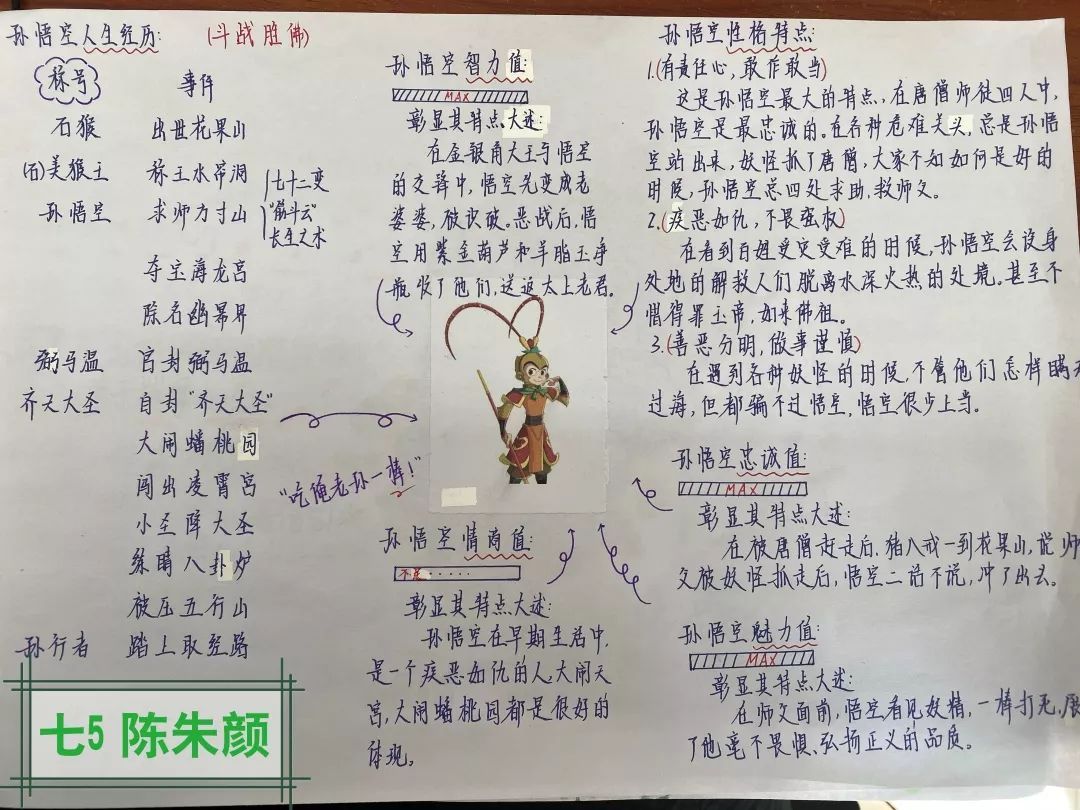 孙悟空人生经历: (斗战胜佛)
称号 事件
石猴 出世花果山
(石)美猴王 称王水帘洞
孙悟空 求师方寸山
七十二变
"筋斗云"
长生之术
夺宝海龙宫
除名幽冥界
弼马温 官封弼马温
齐天大圣 自封"齐天大圣"
大闹蟠桃园
闯出凌霄宫
小圣降大圣
练睛八卦炉
被压五行山
孙行者 踏上取经路
七5 陈朱颜
孙悟空智力值:
MAX
彰显其特点大述:
在金银角大王与悟空
的交锋中,悟空先变成老
婆婆,被识破。恶战后,悟
空用紫金葫芦和羊脂玉净
瓶收了他们,送返太上老君。
"吃俺老孙一棒!"
孙悟空情商值:
不足......
彰显其特点大述:
孙悟空在早期生活中,
是一个疾恶如仇的人,大闹天
宫,大闹蟠桃园都是很好的
体现。
孙悟空性格特点:
1.(有责任心,敢作敢当)
这是孙悟空最大的特点,在唐僧师徒四人中,
孙悟空是最忠诚的。在各种危难关头,总是孙悟
空站出来,妖怪抓了唐僧,大家不知如何是好的
时候,孙悟空总四处求助,救师父。
2.(疾恶如仇,不畏强权)
在看到百姓受灾受难的时候,孙悟空会设身
处地的解救人们脱离水深火热的处境。甚至不
惜得罪玉帝,如来佛祖。
3.(善恶分明,做事谨慎)
在遇到各种妖怪的时候,不管他们怎样瞒天
过海,但都骗不过悟空,悟空很少上当。
孙悟空忠诚值:
MAX
彰显其特点大述:
在被唐僧赶走后,猪八戒一到花果山,说师
父被妖怪抓走后,悟空二话不说,冲了出去。
孙悟空魅力值:
MAX
彰显其特点大述:
在师父面前,悟空看见妖精,一棒打死,展
了他毫不畏惧、弘扬正义的品质。